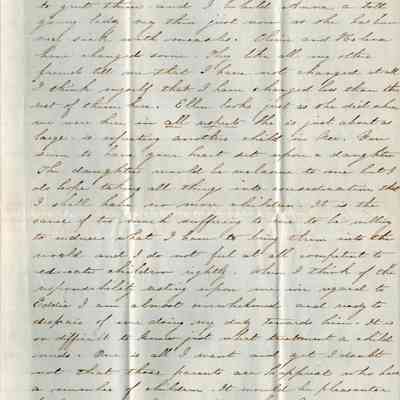 to greet them and I behold Anna, a tall
young lady very thin just now as she has been
very sick with measles. Olivia and
have changed some. They like all my other
friends tell me that I have not changed at all
I think myself that I have changed less than the
rest of them here. Ellen looks just as she did when
we were here in all respects She is just about as
large is expecting another child in Nov. You
seem to have your heart set upon a daughter
The daughter would be welcome to me but I
do hope taking all things into consideration that
I shall have no more children. It is the
cause of too much suffering to me to be willing
to endure what I have to bring them into the
world and I do not feel at all competent to
educate children rightly. When I think of the
responsibility resting upon me in regard to
Eddie I am almost overwhelmed and ready to
despair of ever doing my duty towards him. It is
so difficult to know just what treatment a child
needs. One is all I want and yet I doubt
not that those parents are happiest who have
a number of children. It would be pleasanter